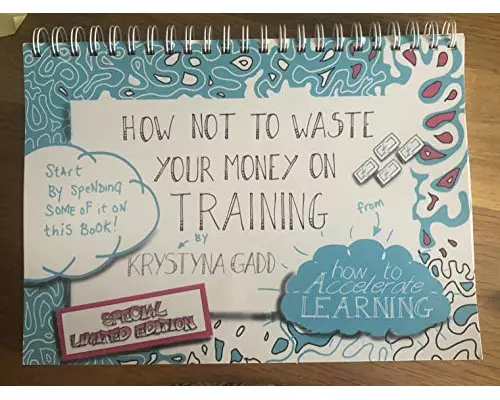 HOW NOT TO WASTE
YOUR MONEY ON
TRAINING
Start
By SPENDING
SOME of it ON
this BOOK!
BY
KRYSTYNA GADD
from
how to
Accelerate
LEARNING
SPECIAL
LIMITED EDITION